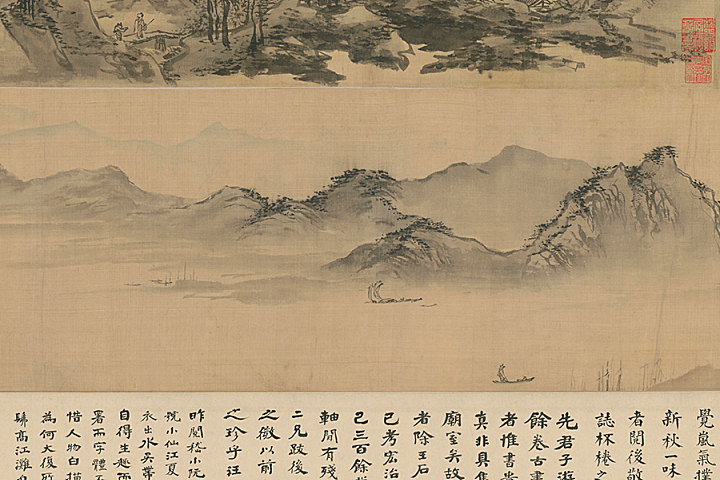 覺嵐氣撲
新秋一味
者閱後敬
誌杯棬之
先君子游
餘卷古書
者惟書
真非具隻
廟室矣故
者除王石
已考宏治
已三百餘
軸閒有殘
二兄跋後
之徵以前
之珍乎汪
昨閱嵇小阮
號小仙江夏
衣出水吳帶
自得生趣而
署兩字體不
惜人物白描
為何大復所
歸高江